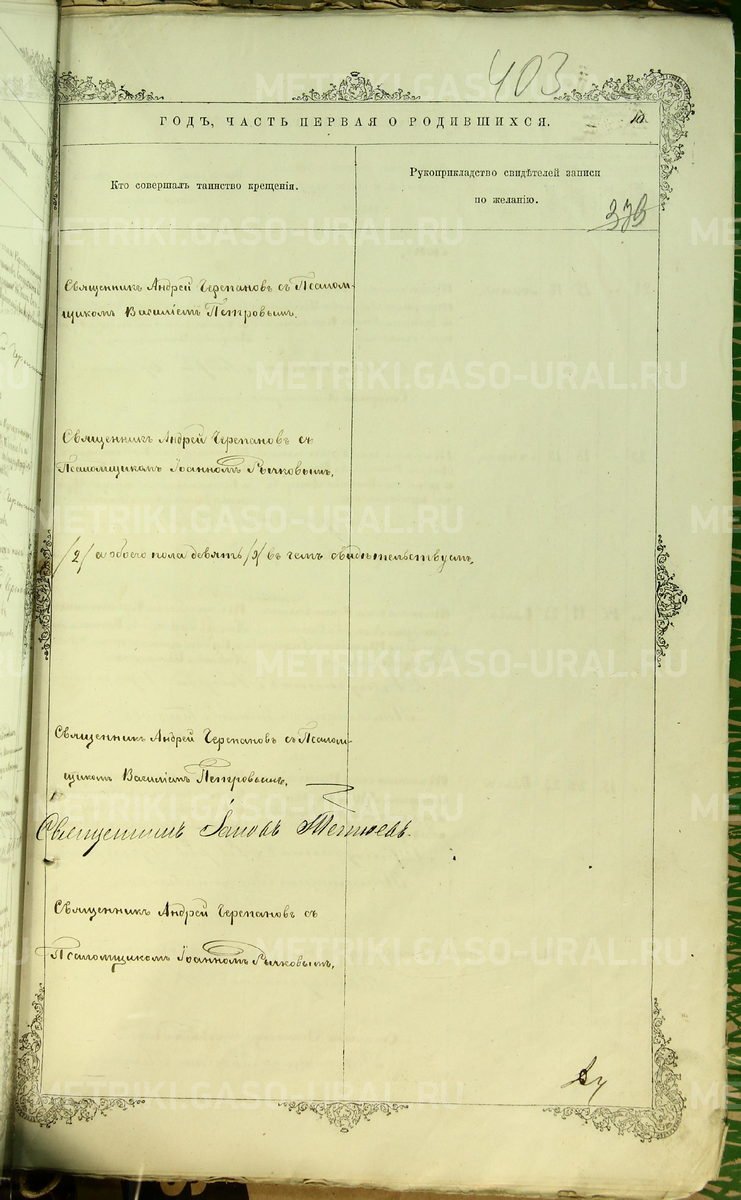 403
ГОДЪ, ЧАСТЬ ПЕРВАЯ О РОДИВШИХСЯ.
10.
Кто совершалъ таинство крещенія.
Рукоприкладство свидѣтелей записи
по желанію.
Священникъ Андрей Черепановъ съ Псалом-
щикомъ Василіемъ Петровымъ.
Священникъ Андрей Черепановъ съ
Псаломщикомъ Іоанномъ Рычковымъ.
/2/ а обоего пола девять /9/ въ чемъ свидѣтельствуемъ,
Священникъ Андрей Черепановъ съ Псалом-
щикомъ Василіемъ Петровымъ.
Священникъ Іаковъ
Священникъ Андрей Черепановъ съ
Псаломщикомъ Іоанномъ Рычковымъ.
METRIKI.GASO-URAL.RU